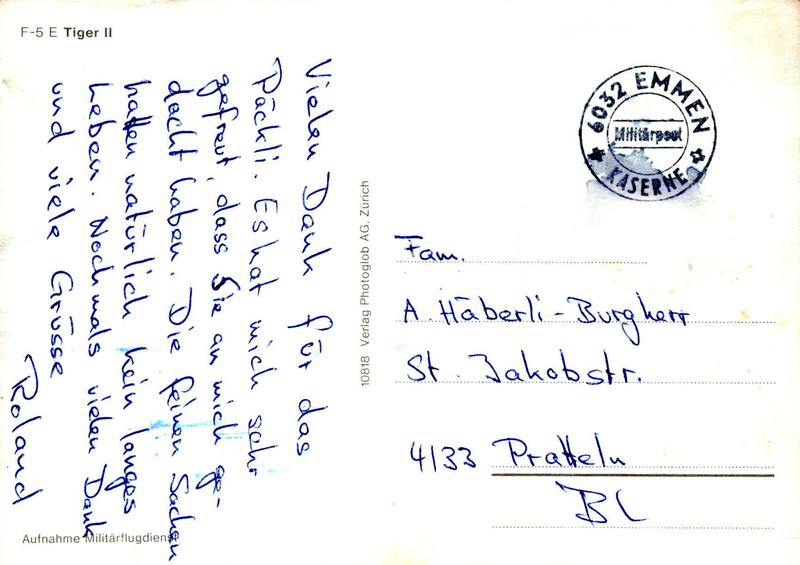 F-5 E Tiger II
Vielen Dank für das
Päckli. Es hat mich sehr
gefreut, dass Sie an mich ge-
dacht haben. Die feinen Sachen
hatten natürlich kein langes
Leben. Nochmals vielen Dank
und viele Grüsse
Roland
Aufnahme Militärflugdienst
10818 Verlag Photoglob AG, Zürich
6032 EMMEN
Militärpost
KASERNE
Fam.
A. Häberli-Burgherr
St. Jakobstr.
4133 Pratteln
BL